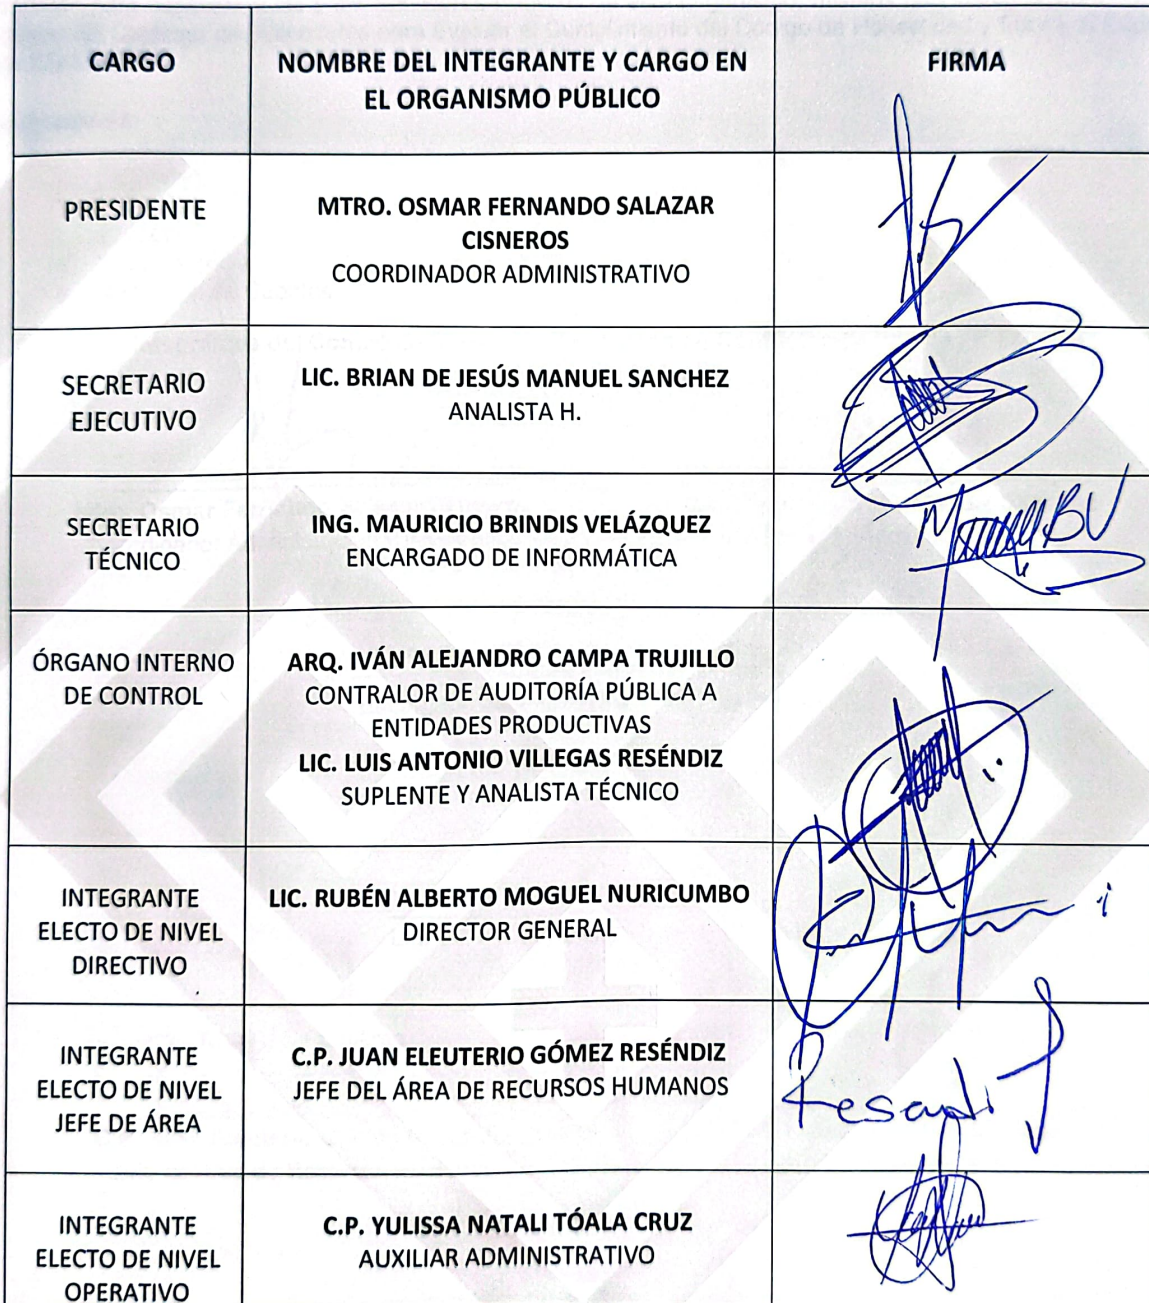 CARGO
NOMBRE DEL INTEGRANTE Y CARGO EN
EL ORGANISMO PÚBLICO
FIRMA
PRESIDENTE
MTRO. OSMAR FERNANDO SALAZAR
CISNEROS
COORDINADOR ADMINISTRATIVO
SECRETARIO
EJECUTIVO
LIC. BRIAN DE JESÚS MANUEL SANCHEZ
ANALISTA H.
SECRETARIO
TÉCNICO
ING. MAURICIO BRINDIS VELÁZQUEZ
ENCARGADO DE INFORMÁTICA
ÓRGANO INTERNO
DE CONTROL
ARQ. IVÁN ALEJANDRO CAMPA TRUJILLO
CONTRALOR DE AUDITORÍA PÚBLICA A
ENTIDADES PRODUCTIVAS
LIC. LUIS ANTONIO VILLEGAS RESÉNDIZ
SUPLENTE Y ANALISTA TÉCNICO
INTEGRANTE
ELECTO DE NIVEL
DIRECTIVO
LIC. RUBÉN ALBERTO MOGUEL NURICUMBO
DIRECTOR GENERAL
INTEGRANTE
ELECTO DE NIVEL
JEFE DE ÁREA
C.P. JUAN ELEUTERIO GÓMEZ RESÉNDIZ
JEFE DEL ÁREA DE RECURSOS HUMANOS
INTEGRANTE
ELECTO DE NIVEL
OPERATIVO
C.P. YULISSA NATALI TÓALA CRUZ
AUXILIAR ADMINISTRATIVO